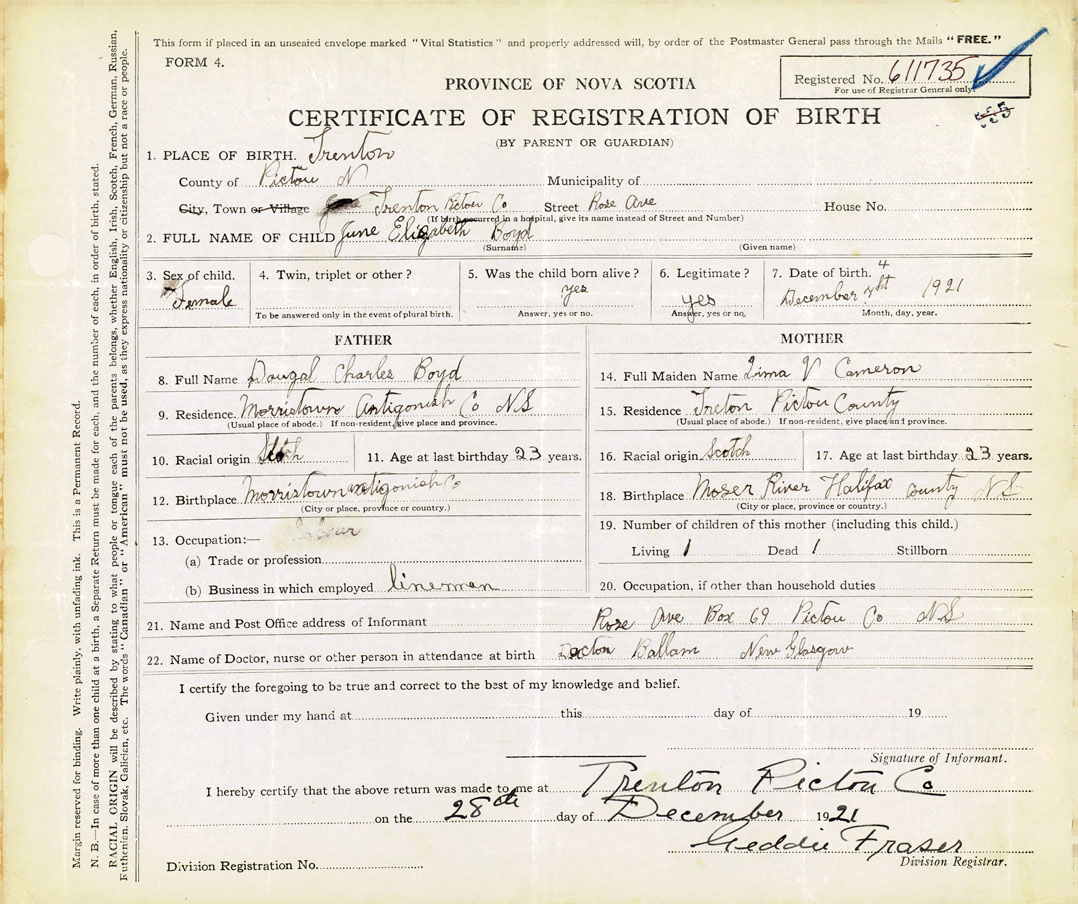 This form if placed in an unsealed envelope marked "Vital Statistics" and properly addressed will, by order of the Postmaster General pass through the Mails "FREE."
FORM 4.
Registered No. 611735
For use of Registrar General only.
PROVINCE OF NOVA SCOTIA
CERTIFICATE OF REGISTRATION OF BIRTH
(BY PARENT OR GUARDIAN)
1. PLACE OF BIRTH. Trenton
County of Pictou N Municipality of
City, Town or Village Trenton Pictou Co Street Rose Ave House No.
(If birth occurred in a hospital, give its name instead of Street and Number)
2. FULL NAME OF CHILD June Elizabeth Boyd
(Surname) (Given name)
3. Sex of child. Female
4. Twin, triplet or other?
To be answered only in the event of plural birth.
5. Was the child born alive? yes
Answer, yes or no.
6. Legitimate? yes
Answer, yes or no,
7. Date of birth. 4
December 1921
Month, day, year.
FATHER
8. Full Name Dougal Charles Boyd
9. Residence. Morristown Antigonish Co NS
(Usual place of abode.) If non-resident, give place and province.
10. Racial origin Scotch 11. Age at last birthday 23 years.
12. Birthplace Morristown Antigonish Co
(City or place, province or country.)
13. Occupation:—
(a) Trade or profession
(b) Business in which employed lineman
MOTHER
14. Full Maiden Name Lima V Cameron
15. Residence Treton Pictou County
(Usual place of abode.) If non-resident, give place and province.
16. Racial origin Scotch 17. Age at last birthday 23 years.
18. Birthplace Moser River Halifax County NS
(City or place, province or country.)
19. Number of children of this mother (including this child.)
Living 1 Dead 1 Stillborn
20. Occupation, if other than household duties
21. Name and Post Office address of Informant Rose Ave Box 69 Pictou Co NS
22. Name of Doctor, nurse or other person in attendance at birth Ballam New Glasgow
I certify the foregoing to be true and correct to the best of my knowledge and belief.
Given under my hand at this day of 19
Signature of Informant.
I hereby certify that the above return was made to me at Trenton Picton Co
on the 28th day of December 1921
Geddie Fraser
Division Registrar.
Division Registration No.
Margin reserved for binding. Write plainly, with unfading ink. This is a Permanent Record.
N. B.—In case of more than one child at a birth, a Separate Return must be made for each, and the number of each, in order of birth, stated.
RACIAL ORIGIN will be described by stating to what people or tongue each of the parents belongs, whether English, Irish, Scotch, French, German, Russian,
Ruthenian, Slovak, Galician, etc. The words "Canadian" or "American" must not be used, as they express nationality or citizenship but not a race or people.